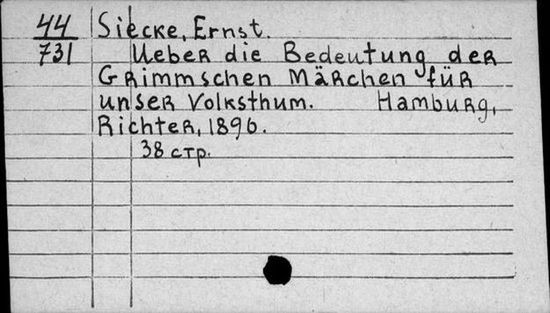 44 Siecke, Ernst.
731 Ueber die Bedeutung der
Grimmschen Märchen für
unser Volksthum. Hamburg,
Richter, 1896.
38 стр.